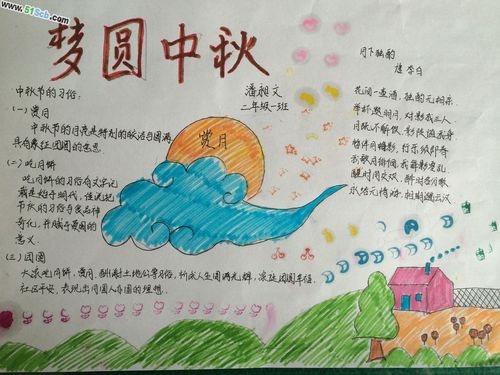 www.51Scb.com
梦圆中秋
潘昶文
二年级一班
中秋节的习俗:
(一)赏月
中秋节的月亮是特别的皎洁与圆满
具有象征团圆的意思.
(二)吃月饼
吃月饼的习俗有文字记
载是始于明代,
节饮的习俗与食品种
奇化,并赋于美国的
意义.
(三)团圆
大家吃月饼,赏月,酬谢土地公等习俗,祈求人生圆满光辉,家庭团圆幸福,
社区平安,表现出中国人合团的理想.
赏月
月下独酌
唐 李白
花间一壶酒,独酌无相亲.
举杯邀明月,对影成三人
月既不解饮,影徒随我身
暂伴月将影,行乐须即春
我歌月徘徊,我舞影凌乱
醒时同交欢,醉时各分散
永结无情游,相期邈云汉